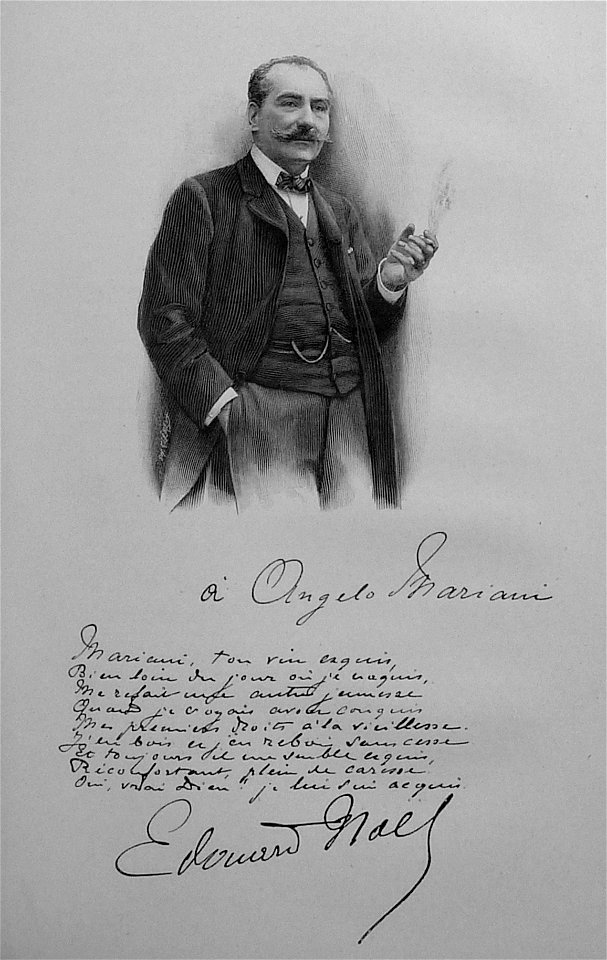 à Angelo Mariani
Mariani, ton vin exquis,
Bien loin du jour où je naquis,
Me refait une autre jeunesse
Quand je croyais avoir conquis
Mes premiers droits à la vieillesse.
J'en bois et j'en rebois sans cesse
Et toujours il me semble exquis,
Réconfortant, plein de caresse
Oui, vrai Dieu! je lui suis acquis.
Edouard Noël